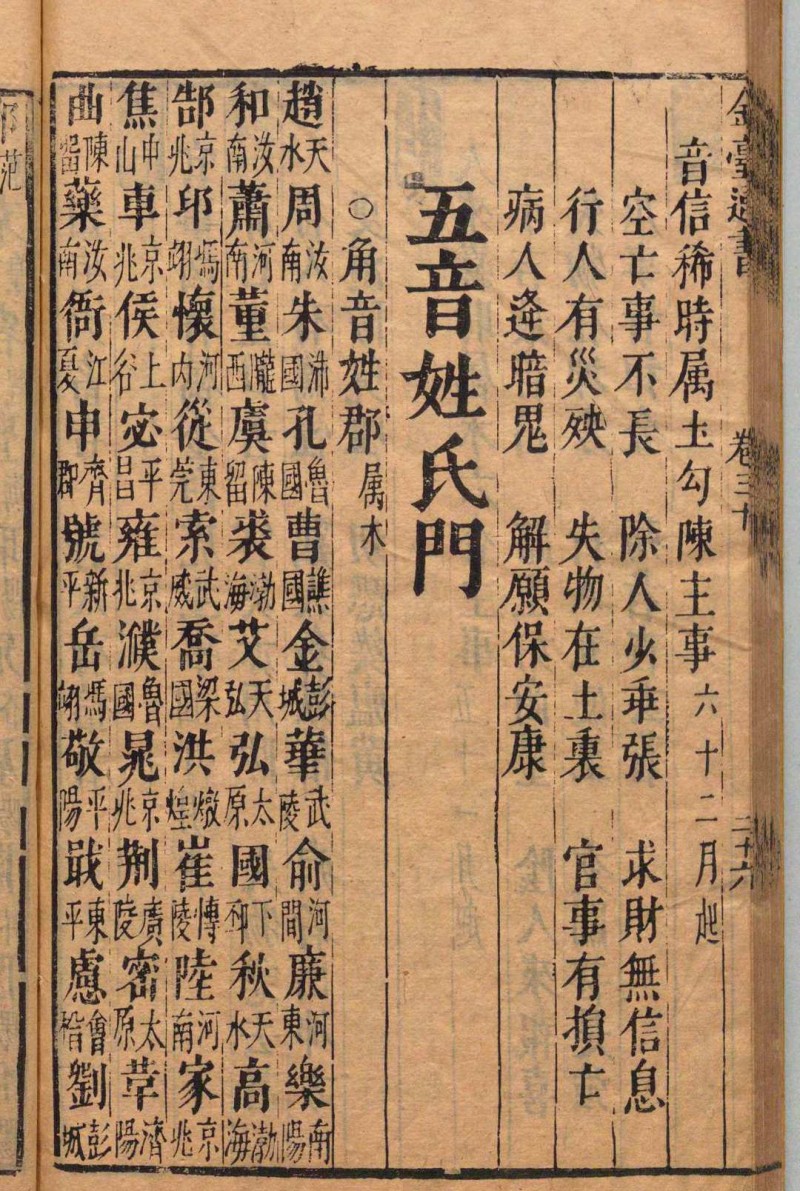 卷三十 二十六
音信稀時属土勾陳主事六十二月起
空亡事不長 除人少乖張 求財無信息
行人有災殃 失物在土裏 官事有損亡
病人逢暗鬼 解願保安康
五音姓氏門
○角音姓郡属木
趙天水周汝南朱沛國孔魯國曹譙國金彭城華武陵俞河間廉河東樂南陽
和汝南蕭河南董隴西虞陳留裘渤海艾天弘弘太原國下邳秋天水高渤海
郜京兆邱馮翊懷河内從東莞索武威喬梁國洪燉煌崔博陵陸河南家京兆
焦中山車京兆侯上谷宓平昌雍京兆濮魯國晁京兆荆廣陵密太原莘濟陽
曲陳留藥汝南衙江夏申齊郡號新平岳馮翊敬平陽戢東平慮會稽劉彭城
范